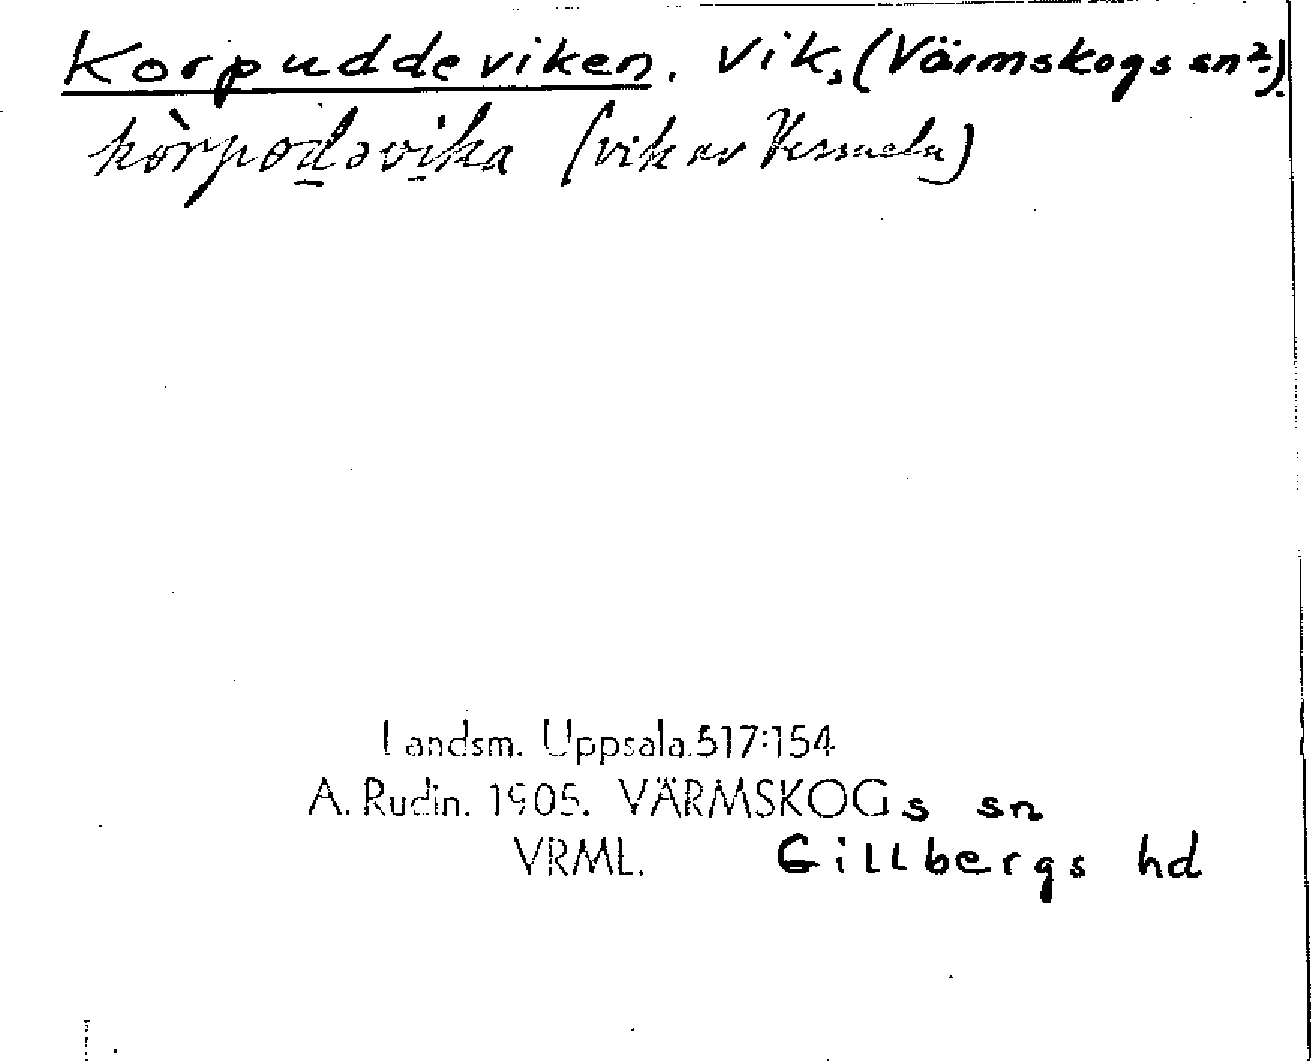 Korpuddeviken. Vik, (Värmskogs sn?).
kòrpodəvika (vik av Värmeln)
Landsm. Uppsala.517:154
A. Rudin. 1905. VÄRMSKOGs sn
VRML. Gillbergs hd